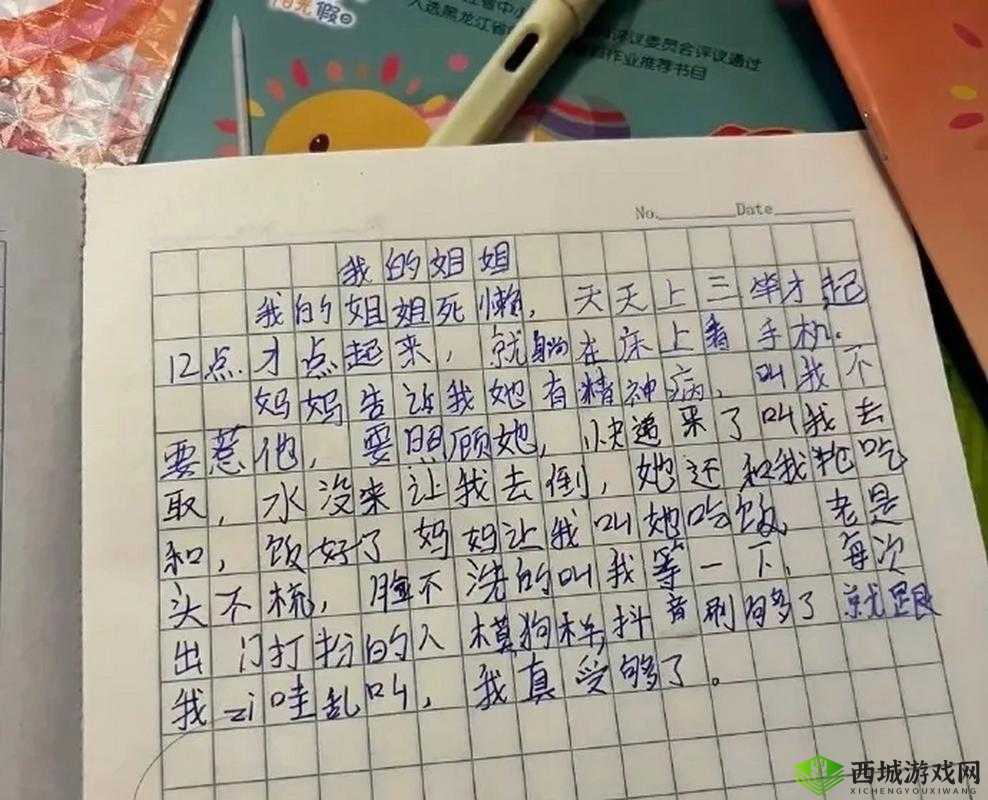 阳光假日
省中小
入选黑龙江省
评议委员会评议通过
作业推荐书目
No.
Date
我的姐姐
我的姐姐死懒,天天上三竿才起
12点.才点起来,就躺在床上看手机.
妈妈告诉我她有精神病,叫我不
要惹他,要照顾她,快递来了叫我去
取,水没来让我去倒,她还和我抢吃
和,饭好了妈妈让我叫她吃饭,老是
头不梳,脸不洗的叫我等一下,每次
出门打扮的人模狗样抖音刷多了就跟
我zi哇乱叫,我真受够了。
西城游戏网
XICHENGYOUXIWANG